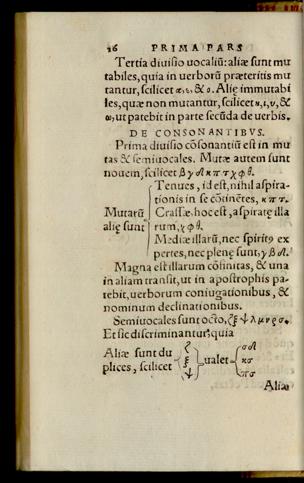 26 PRIMA PARS
Tertia diuisio uocaliū: aliæ sunt mu
tabiles, quia in uerborū præteritis mu
tantur, scilicet α, ε, & ο. Alię immutabi
les, quæ non mutantur, scilicet η, ι, υ, &
ω, ut patebit in parte secūda de uerbis.
DE CONSONANTIBVS.
Prima diuisio cōsonantiū est in mu
tas & semiuocales. Mutæ autem sunt
nouem, scilicet β γ δ κ π τ χ φ θ.
Tenues, id est, nihil aspira-
tionis in se cōtinētes, κ π τ.
Mutarū
alię sunt
Crassæ, hoc est, aspiratę illa
rum, χ φ θ.
Mediæ illarū, nec spiritꝰ ex
pertes, nec plenę sunt, γ β δ.
Magna est illarum cōfinitas, & una
in aliam transit, ut in apostrophis pa-
tebit, uerborum coniugationibus, &
nominum declinationibus.
Semiuocales sunt octo, ζ ξ ψ λ μ ν ρ σ.
Et sic discriminantur: quia
Aliæ sunt du
plices, scilicet
ζ
ξ
ψ
ualet
σδ
κσ
πσ
Aliæ